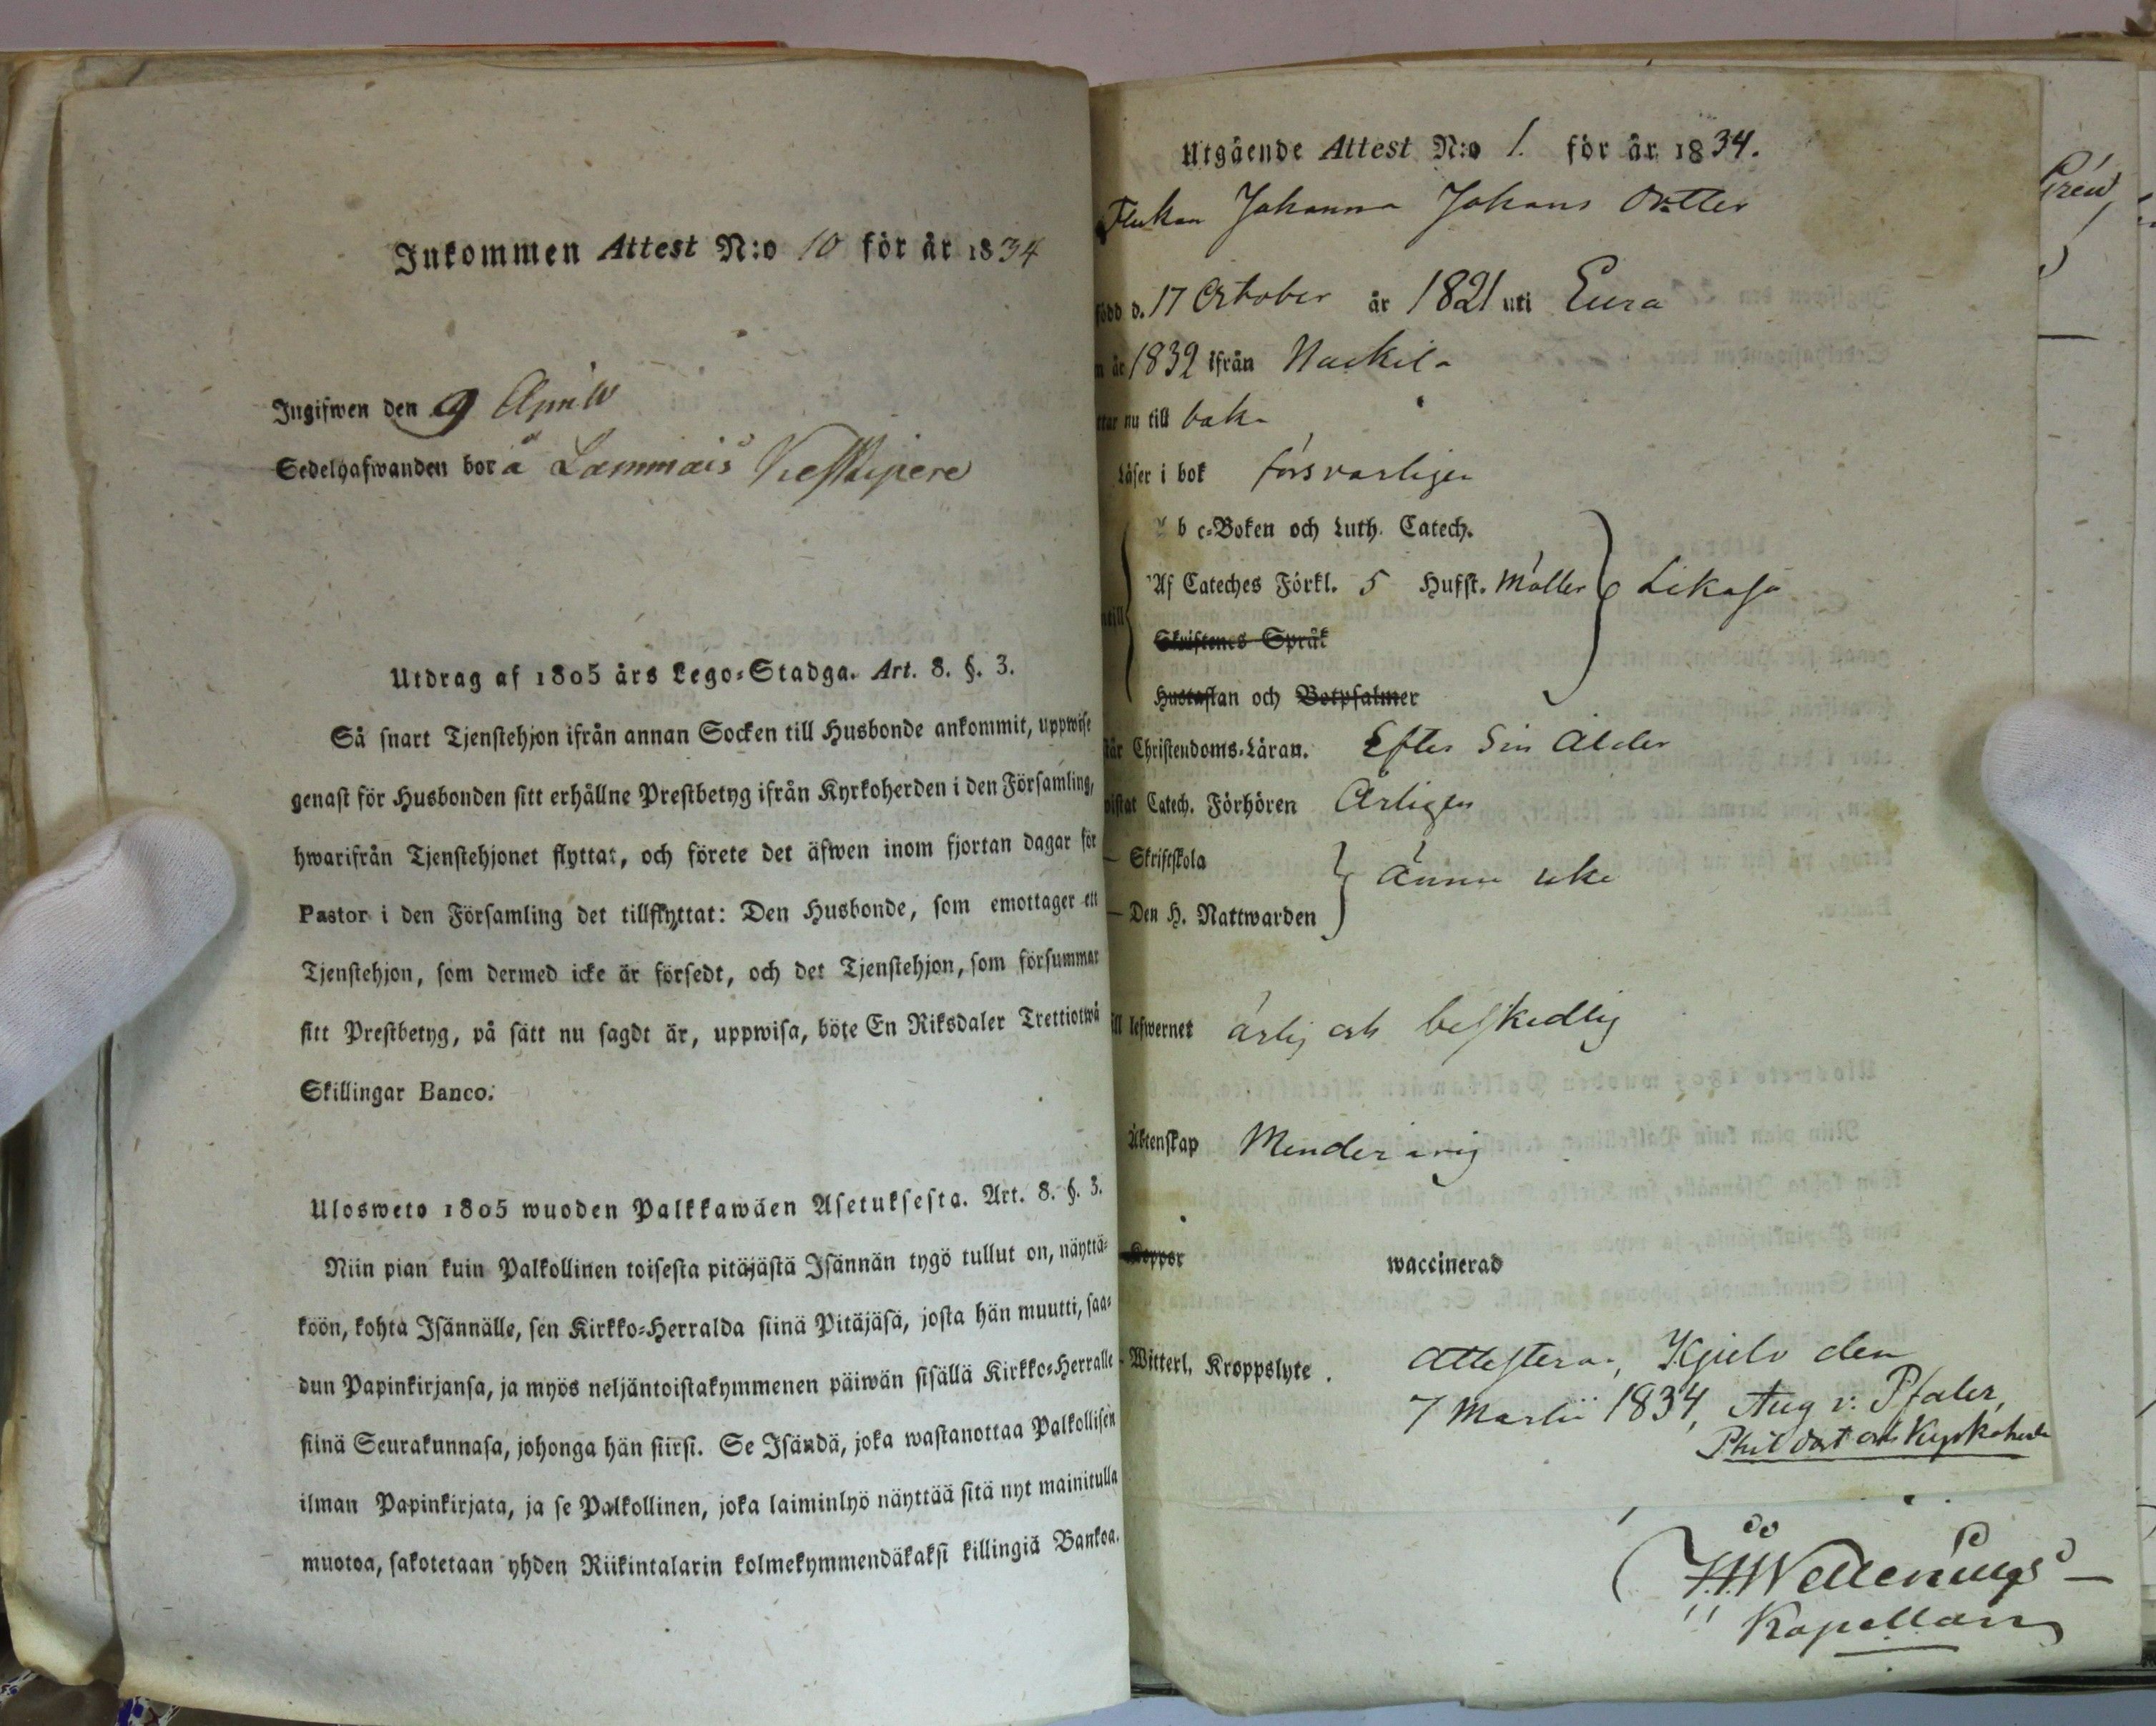 Inkommen Attest N:o 10 för år 1834
Ingifwen den 9 Aprill
Sedelhafwanden bor å Lammais
Utdrag af 1805 års Lego-Stadga. Art. 8. §. 3.
Så snart Tjenstehjon ifrån annan Socken till Husbonde ankommit, uppwise
genast för Husbonden sitt erhållne Prestbetyg ifrån Kyrkoherden i den Församling,
hwarifrån Tjenstehjonet flyttat, och förete det äfwen inom fjortan dagar för
Pastor i den Församling det tillflyttat: Den Husbonde, som emottager ett
Tjenstehjon, som dermed icke är försedt, och det Tjenstehjon, som försummar
sitt Prestbetyg, på sätt nu sagdt är, uppwisa, böte En Riksdaler Trettiotwå
Skillingar Banco.
Ulosweto 1805 wuoden Palkkawäen Asetuksesta. Art. 8. §. 3.
Niin pian kuin Palkollinen toisesta pitäjästä Isännän tygö tullut on, näyttä-
köön, kohta Isännälle, sen Kirkko-Herralda siinä Pitäjäsä, josta hän muutti, saa-
dun Papinkirjansa, ja myös neljäntoistakymmenen päiwän sisällä Kirkko-Herralle
siinä Seurakunnasa, johonga hän siirsi. Se Isändä, joka wastanottaa Palkollisen
ilman Papinkirjata, ja se Palkollinen, joka laiminlyö näyttää sitä nyt mainitulla
muotoa, sakotetaan yhden Riikintalarin kolmekymmendäkaksi killingiä Bankoa.
Utgående Attest N:o 1. för år 1834.
Flickan Johanna Johans dotter
född d. 17 October år 1821 uti Eura
år 1832 ifrån Nackila
nu till baka
Läser i bok försvarligen
b c-Boken och Luth. Catech.
Af Cateches Förkl. 5 Hufst. Möller Likaså
Skriftenes Språk
Hustaflan och Botpsalmer
Christendoms-Läran. Efter Sin Ålder
Catech. Förhören Årligen
— Skriftskola
— Den H. Nattwarden ännu icke
till lefwernet ärlig och beskedlig
Äktenskap Minderårig
Koppor waccinerad
- Witterl. Kroppslyte. Attesterar, Kjulo den
7 Martii 1834, Aug v: Pfaler,
Phil doct och Kyrkoherde
Kapellan